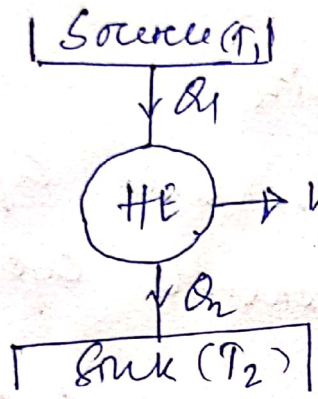 Source (T₁)
Q₁
HE
Q₂
Sink (T₂)